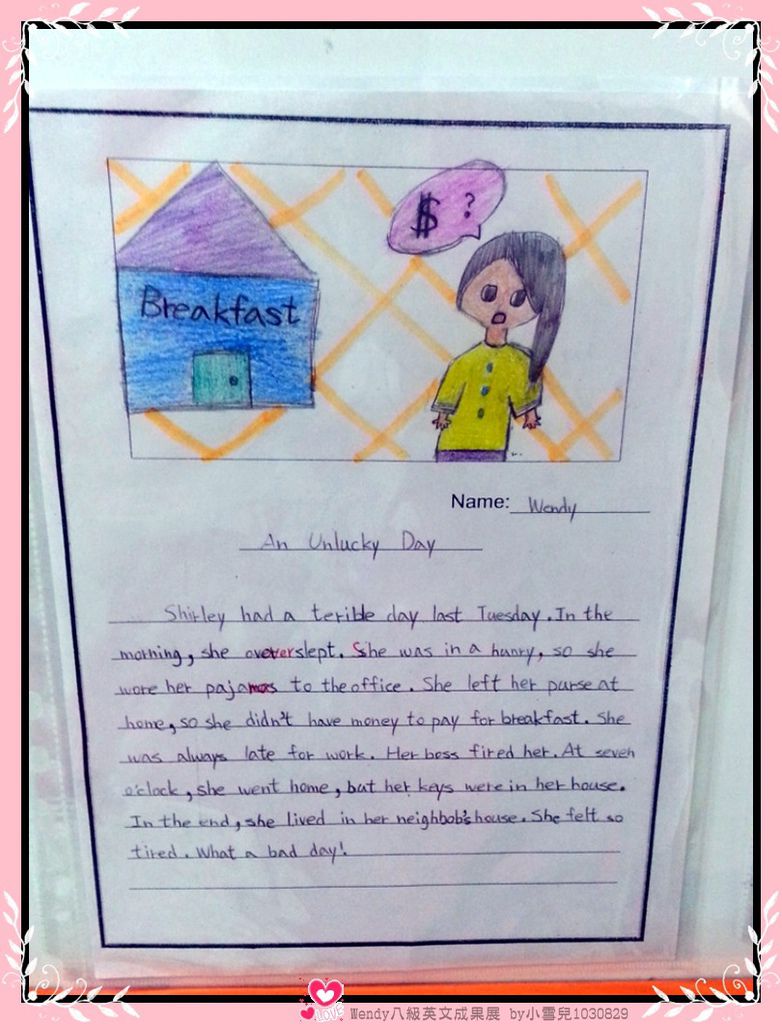 $ ?
Breakfast
Name: Wendy
An Unlucky Day
Shirley had a terible day last Tuesday. In the
morning, she overslept. She was in a hurry, so she
wore her pajamas to the office. She left her purse at
home, so she didn't have money to pay for breakfast. She
was always late for work. Her boss fired her. At seven
o'clock, she went home, but her keys were in her house.
In the end, she lived in her neighbob's house. She felt so
tired. What a bad day!
LOVE Wendy八級英文成果展 by小雪兒1030829